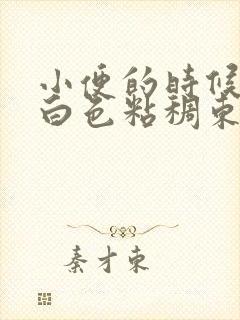 小便的時候
白色粘稠東
秦才東